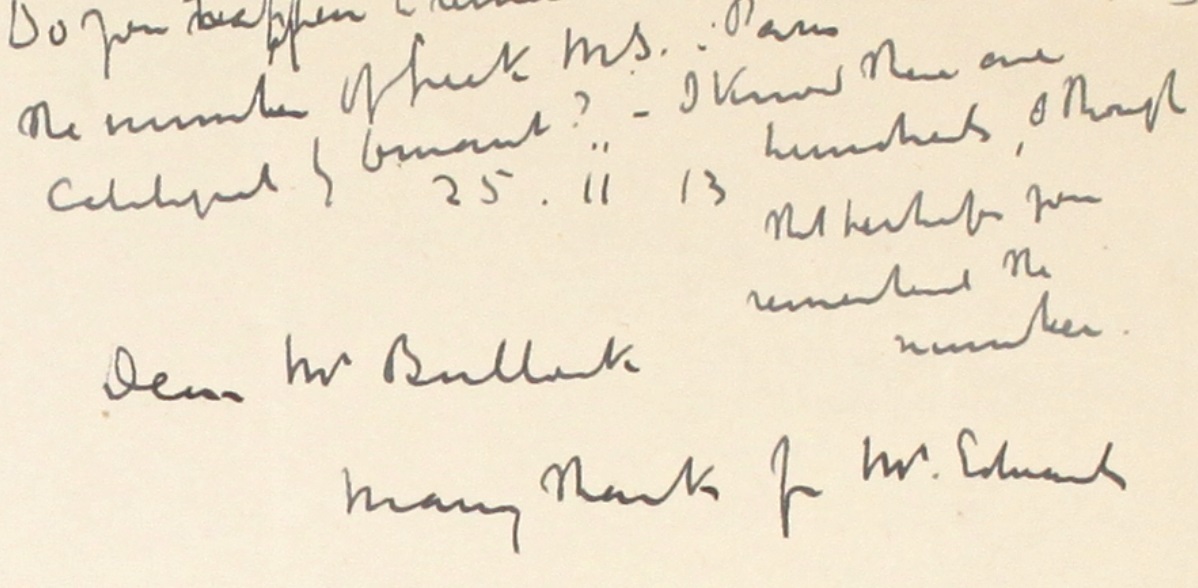 Do you happen to
the number of Greek MS. : Paris
Catalogued by Omont? - I know there are
hundreds, I though
25 . 11 13
that perhaps you
remembered the
number.
Dear Mr Bullock
Many thanks for Mr. Edwards